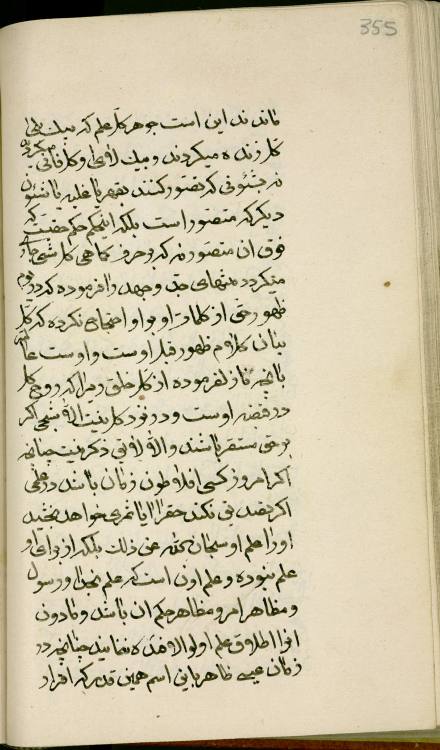 355
ماندند این است جوهر کل علم که بیک بلی
کل زنده میگردند و بیک لا
نه بشئونی که تصور کنند بقهر یا غلبه یا شئون
دیگر که متصور است بلکه حکم حقیت که
فوق آن متصور نه که بحرف کل شیء
میگردد منتهای جد و جهد را فرموده که در یوم
ظهور حق از کلمات او بر او احتجاج نکرده که کل
بیان کلام ظهور قبل اوست و اوست عالم تر
بآنچه نازل فرموده از کل خلق زیرا که روح کل
در قبضه اوست و در نزد کل نیست الا شبحی اگر
بر حق مستقر باشند والا لایق ذکر نیست چنانچه
اگر امروز کسی افلاطون زمان باشد در علمی
اگر تصدیق نکند حق را آیا ثمری خواهد بخشید
او را علم او سبحان الله عن ذلک بلکه از برای او
علم نبوده و علم اون است که علم بخدا و رسول
و مظاهر امر و مظاهر حکم آن باشد و مادون
آنرا اطلاق علم اولو الافئده ننمایند چنانچه در
زمان عیسی ظاهر باین اسم همین قدر که افراد